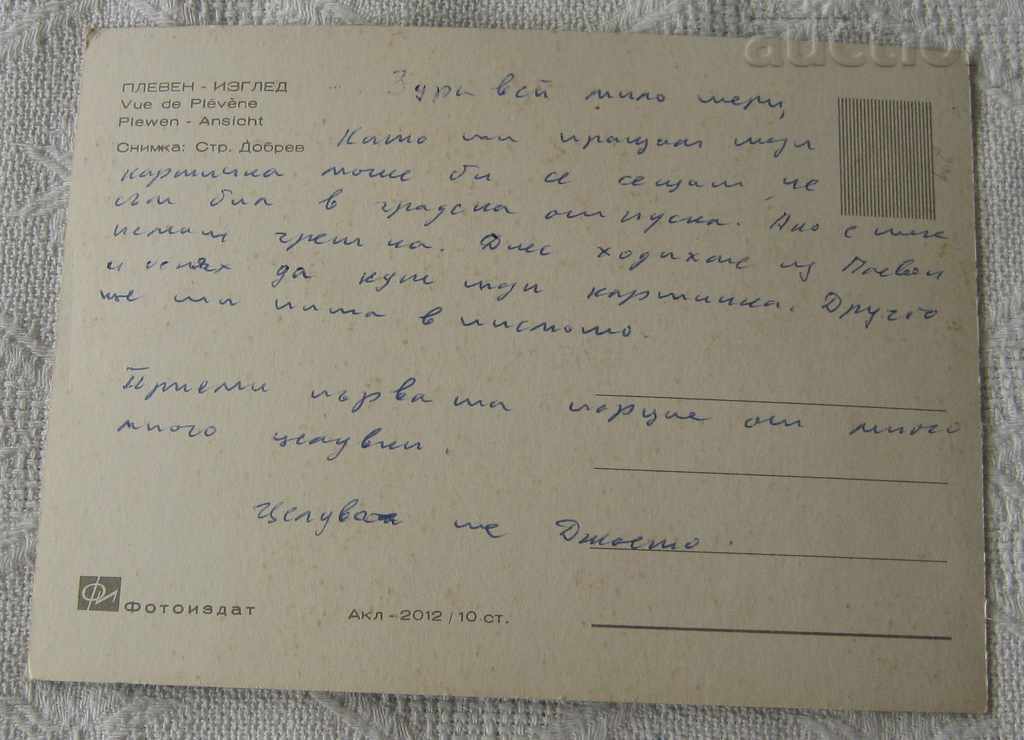 auction
ПЛЕВЕН - ИЗГЛЕД
Vue de Plévène
Plewen - Ansicht
Снимка: Стр. Добрев
Здравей мило мери,
Като ти пращам тази
картичка може би се сещаш че
съм бил в градска отпуска. Ако с теб
нямаш грешка. Днес ходихме из Плевен
и успях да купя тази картичка. Другото
ще ти пиша в писмото.
Приеми първата порция от много
много целувки.
Целува те
Фотоиздат
Акл - 2012 / 10 ст.